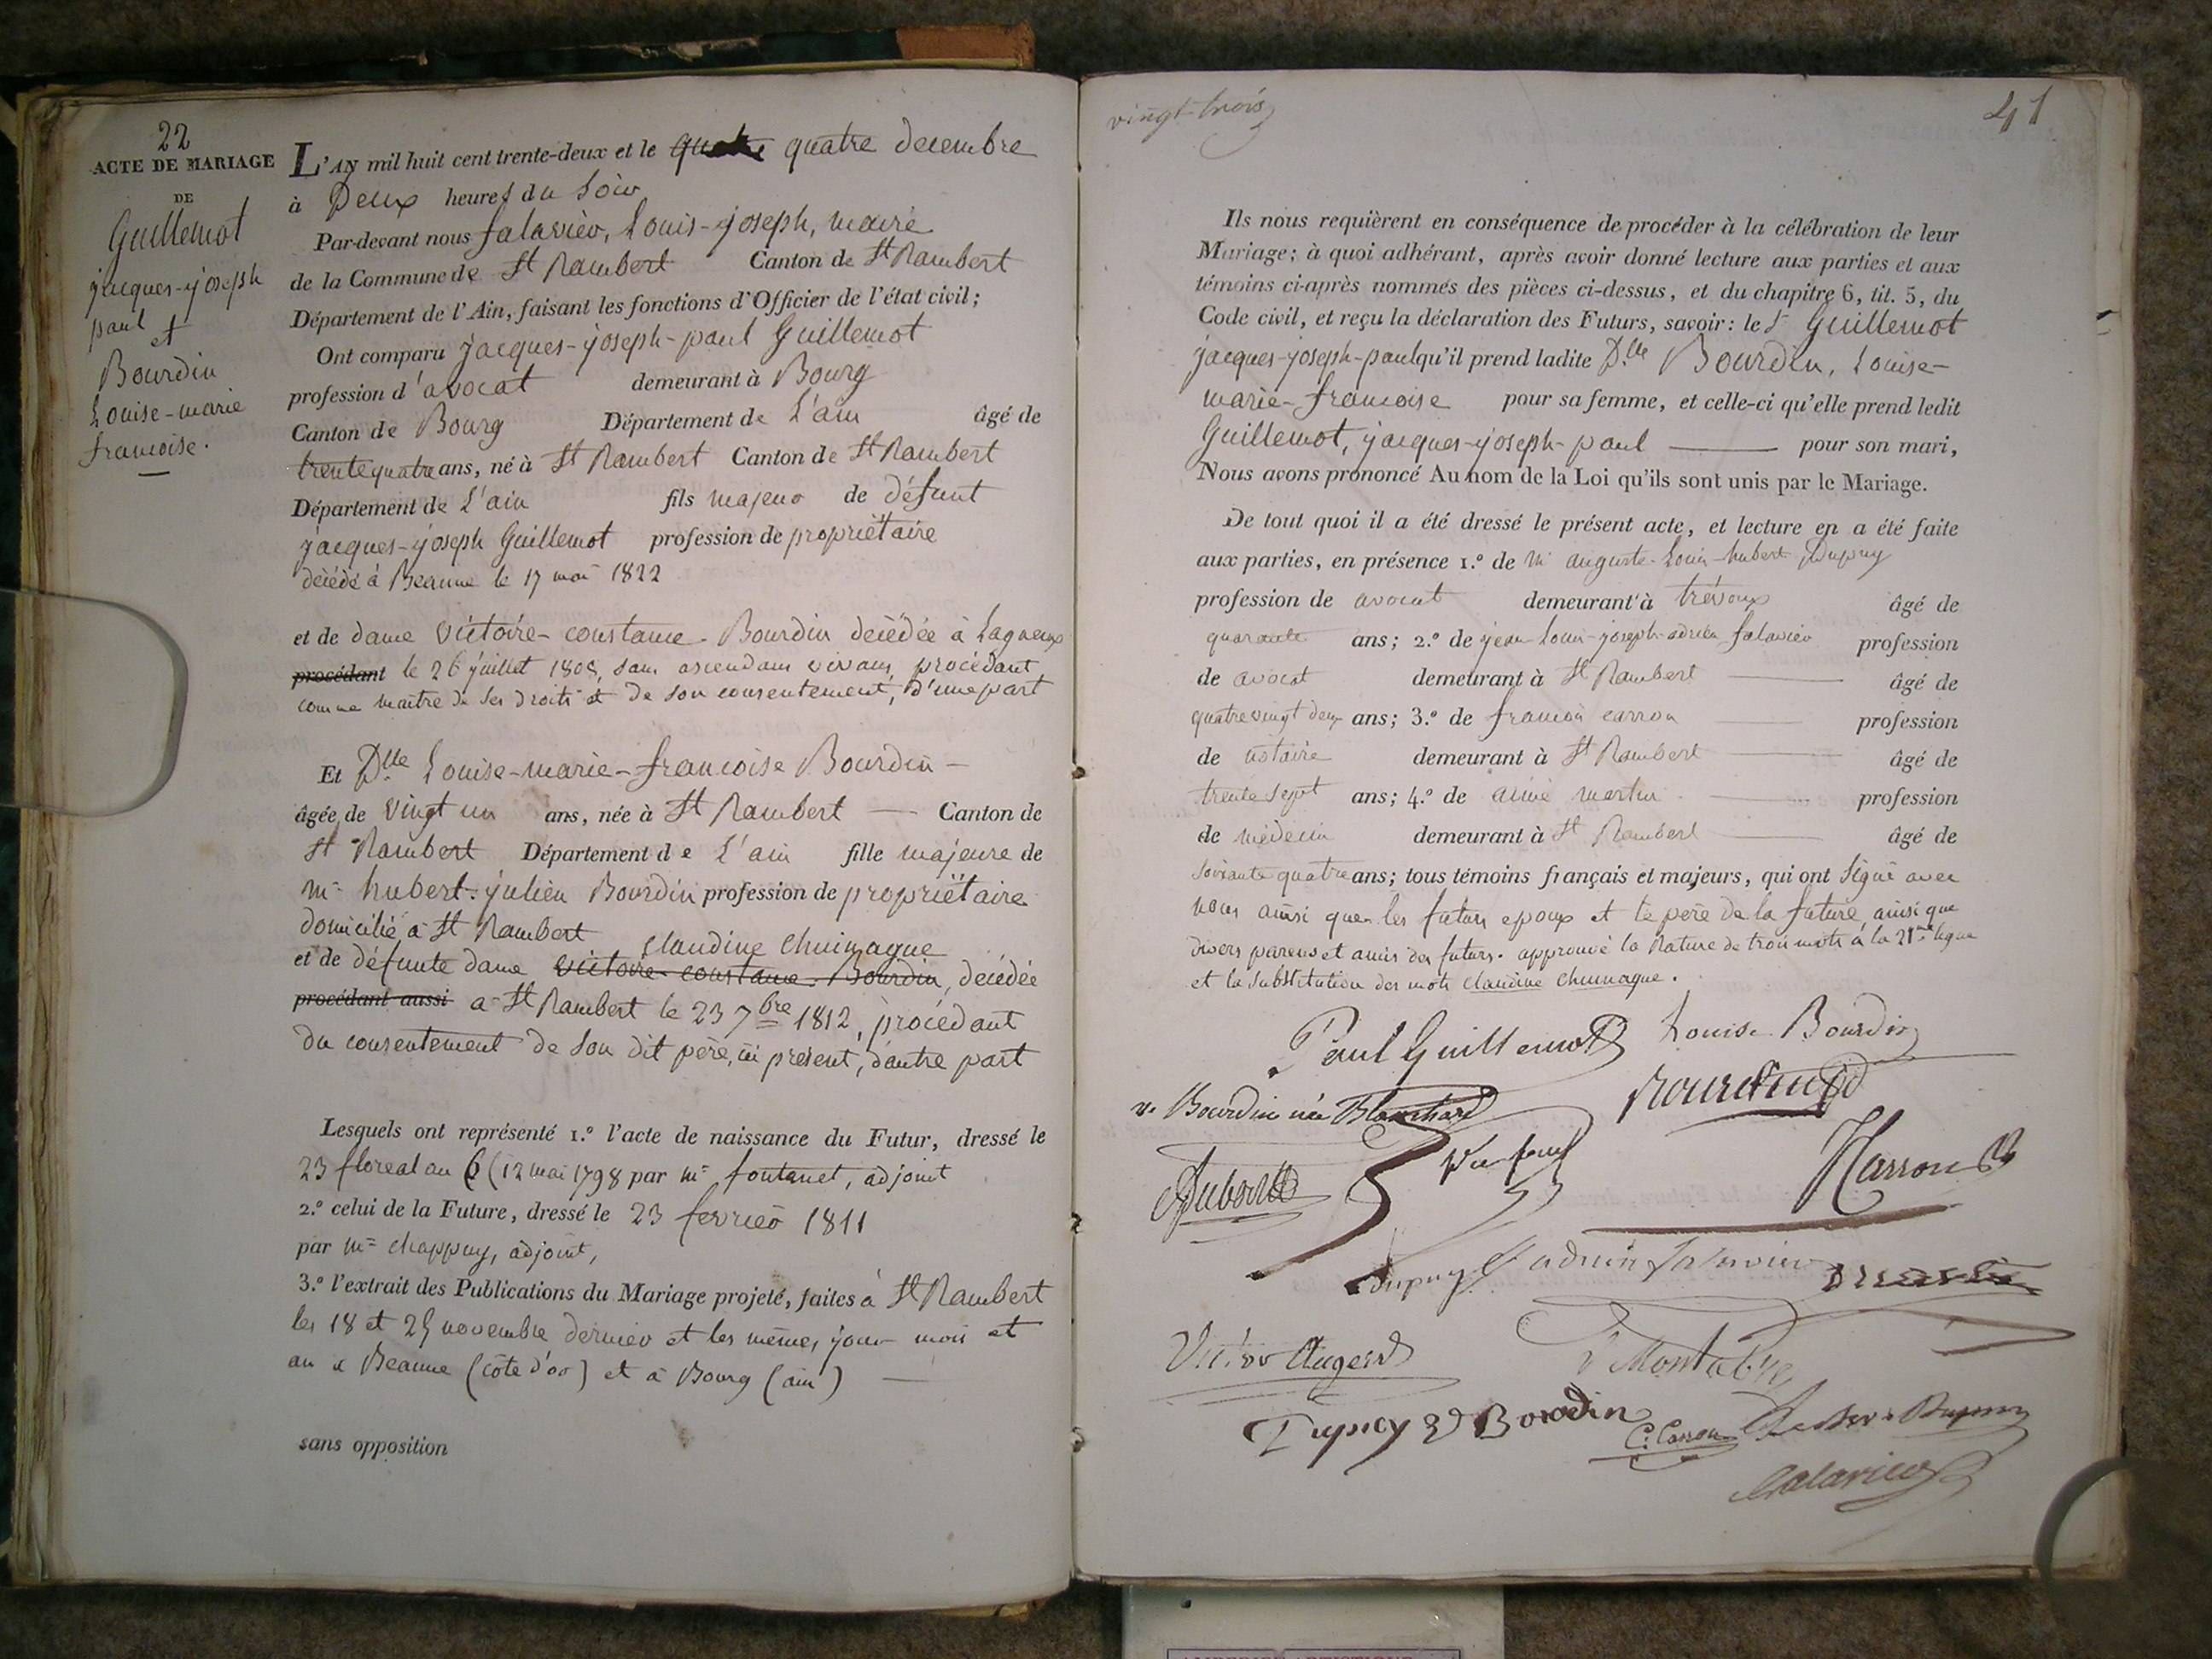 22
ACTE DE MARIAGE
DE
Guillemot
jacques-joseph
paul
et
Bourdin
Louise-marie
francoise.
L'AN mil huit cent trente-deux et le quatre quatre decembre
à Deux heures du soir
Par-devant nous falavier, Louis-joseph, maire
de la Commune de St Rambert Canton de St Rambert
Département de l'Ain, faisant les fonctions d'Officier de l'état civil;
Ont comparu jacques-joseph-paul Guillemot
profession d'avocat demeurant à Bourg
Canton de Bourg Département de L'ain âgé de
trente quatre ans, né à St Rambert Canton de St Rambert
Département de L'ain fils majeur de défunt
jacques-joseph Guillemot profession de propriétaire
décédé à Beaune le 17 mai 1822
et de dame Victoire-constance-Bourdin decédée à Lagneux
procédant le 26 juillet 1808, sans ascendans vivans, procédant
comme maitre de ses droits et de son consentement, d'une part
Et Dlle Louise-marie-francoise Bourdin -
âgée de vingt un ans, née à St Rambert - Canton de
St Rambert Département de L'ain fille majeure de
mr hubert-julien Bourdin profession de propriétaire
domicilié à St Rambert
claudine Chuinague
et de défunte dame Victoire-constance-Bourdin, decédée
procédant aussi a St Rambert le 23 7bre 1812, procédant
du consentement de son dit père, ici présent, d'autre part
Lesquels ont représenté 1.º l'acte de naissance du Futur, dressé le
23 floreal an 6 (12 mai 1798 par mr fontanet, adjoint
2.º celui de la Future, dressé le 23 fevrier 1811
par mr Chappuy, adjoint,
3.º l'extrait des Publications du Mariage projeté, faites à St Rambert
les 18 et 25 novembre dernier et les mêmes jour mois et
an à Beaune (côte d'or) et à Bourg (ain) -
sans opposition
vingt-trois
41
Ils nous requièrent en conséquence de procéder à la célébration de leur
Mariage; à quoi adhérant, après avoir donné lecture aux parties et aux
témoins ci-après nommés des pièces ci-dessus, et du chapitre 6, tit. 5, du
Code civil, et reçu la déclaration des Futurs, savoir: le Sr Guillemot
jacques-joseph-paul qu'il prend ladite Dlle Bourdin, Louise-
marie-francoise pour sa femme, et celle-ci qu'elle prend ledit
Guillemot, jacques-joseph-paul - pour son mari,
Nous avons prononcé Au nom de la Loi qu'ils sont unis par le Mariage.
De tout quoi il a été dressé le présent acte, et lecture en a été faite
aux parties, en présence 1.º de mr auguste-Louis-hubert Dupuy
profession de avocat demeurant à trévoux âgé de
quarante ans; 2.º de jean Louis-joseph-adrien falavier profession
de avocat demeurant à St Rambert - âgé de
quatrevingt deux ans; 3.º de francois carron - profession
de notaire demeurant à St Rambert - âgé de
trente sept ans; 4.º de aimé martin - profession
de médecin demeurant à St Rambert - âgé de
soixante quatre ans; tous témoins français et majeurs, qui ont signé avec
nous ainsi que les futurs epoux et le père de la future, ainsi que
divers parens et amis des futurs. approuvé la rature de trois mots à la 21me ligne
et la substitution des mots claudine chuinague.
Paul Guillemot Louise Bourdin
ve Bourdin née Blanchard Bourdin
Dubost
Carron
Dupuy adrien falavier
Victor Augerd Montabre
Dupuy Bourdin C. Carron
falavier